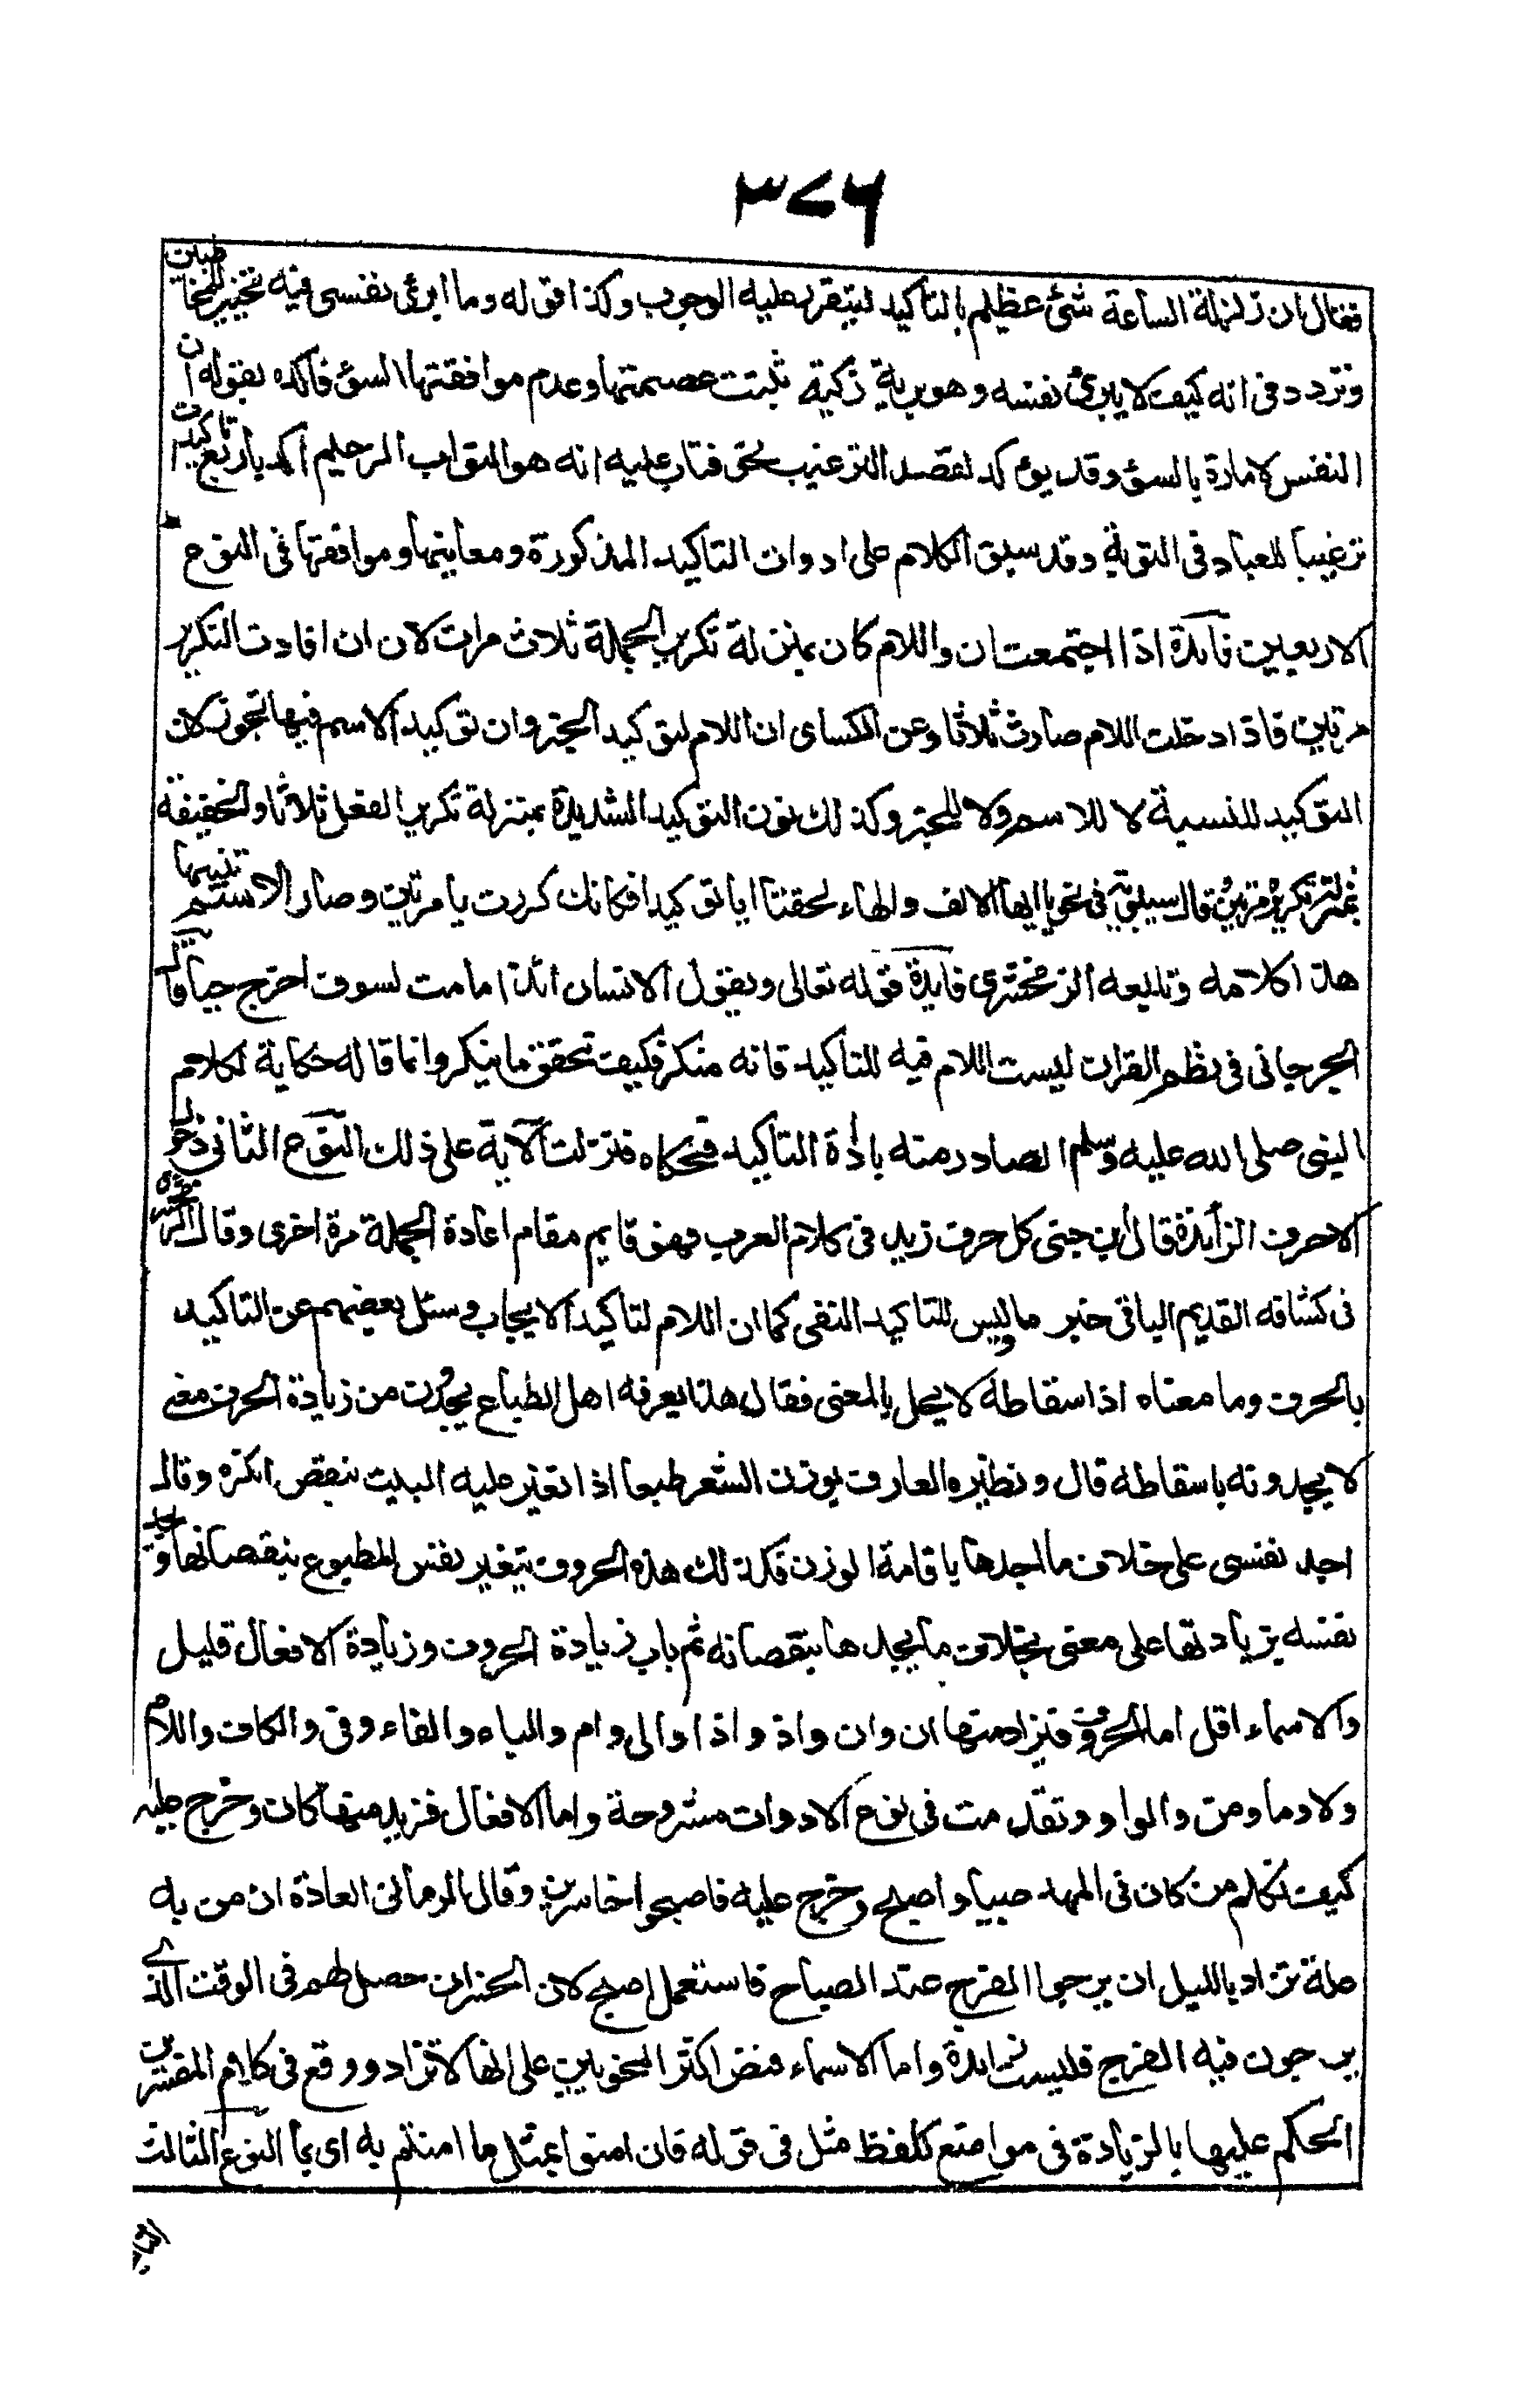 ٣٧٦
فقال ان زلزلة الساعة شئ عظيم بالتاكيد ليتقرر عليه الوجوب وكذا قوله وما ابرئ نفسى فيه تحيير للمخاطبين
وتردد فى انه كيف لا يبرئ نفسه وهو برية زكية ثبتت عصمتها وعدم موافقتها السوء فاكده بقوله ان
النفس لامارة بالسوء وقد يوكد لقصد الترغيب نحو فتاب عليه انه هو التواب الرحيم اكد باربع تاكيدات
ترغيبا للعباد فى التوبة وقد سبق الكلام على ادوات التاكيد المذكورة ومعاينها ومواقعها فى النوع
الاربعين فايدة اذا اجتمعت ان واللام كان بمنزلة تكرير الجملة ثلاث مرات لان ان افادت التكرير
مرتين فاذا دخلت اللام صارت ثلاثا وعن الكساى ان اللام لتوكيد الخبر وان توكيد الاسم فيها تجوز لان
التوكيد للنسبة لا للاسم ولا للخبر وكذلك نون التوكيد الشديدة بمنزلة تكرير الفعل ثلاثا والخفيفة
بمنزلة تكريره مرتين قال سيبويه فى نحو يا ايها الالف والهاء لحقتا ايا توكيدا فكانك كررت يا مرتين وصار الاسم تنبيها
هذا كلامه وتابعه الزمخشرى فايدة قوله تعالى ويقول الانسان ائذا مامت لسوف اخرج حيا قال
الجرجانى فى نظم القران ليست اللام فيه للتاكيد فانه منكر فكيف تحقق ما ينكر وانما قاله حكاية لكلام
النبى صلى الله عليه وسلم الصادر منه باداة التاكيد فحكاه فنزلت الآية على ذلك النوع الثانى دخول
الاحرف الزائدة فقال ابن جنى كل حرف زيد فى كلام العرب فهو قايم مقام اعادة الجملة مرة اخرى وقال الزمخشرى
فى كشافه القديم الباقى خبر ما وليس للتاكيد النفى كما ان اللام لتاكيد الايجاب وسئل بعضهم عن التاكيد
بالحرف وما معناه اذ اسقاطه لا يخل بالمعنى فقال هذا يعرفه اهل الطباع يجدون من زيادة الحرف معنى
لا يجدونه باسقاطه قال ونظيره العارف بوزن الشعر طبعا اذا تغير عليه البيت بنقص انكره وقال
اجد نفسى على خلاف ما اجدها باقامة الوزن فكذلك هذه الحروف يتغير نفس المطبوع بنقصانها ويجد
نفسه بزيادتها على معنى بخلاف ما يجدها بنقصانه ثم باب زيادة الحروف وزيادة الافعال قليل
والاسماء اقل اما الحروف فيزاد منها ان وان واذ واذا والى وام والباء والفاء وفى والكاف واللام
ولا وما ومن والواو وتقدمت فى نوع الادوات مشروحة واما الافعال فزيد منها كان وخرج عليه
كيف نكلم من كان فى المهد صبيا واصبح وخرج عليه فاصبحوا خاسرين وقال الرمانى العادة ان من به
علة تزاد بالليل ان يرجوا الفرج عند الصباح فاستعمل اصبح لان الخسران حصل لهم فى الوقت الذى
يرجون فيه الفرج فليست زايدة واما الاسماء فنص اكثر النحويين على انها لا تزاد ووقع فى كلام المفسرين
الحكم عليها بالزيادة فى مواضع كلفظ مثل فى قوله فان امنوا بمثل ما امنتم به اى بما النوع الثالث